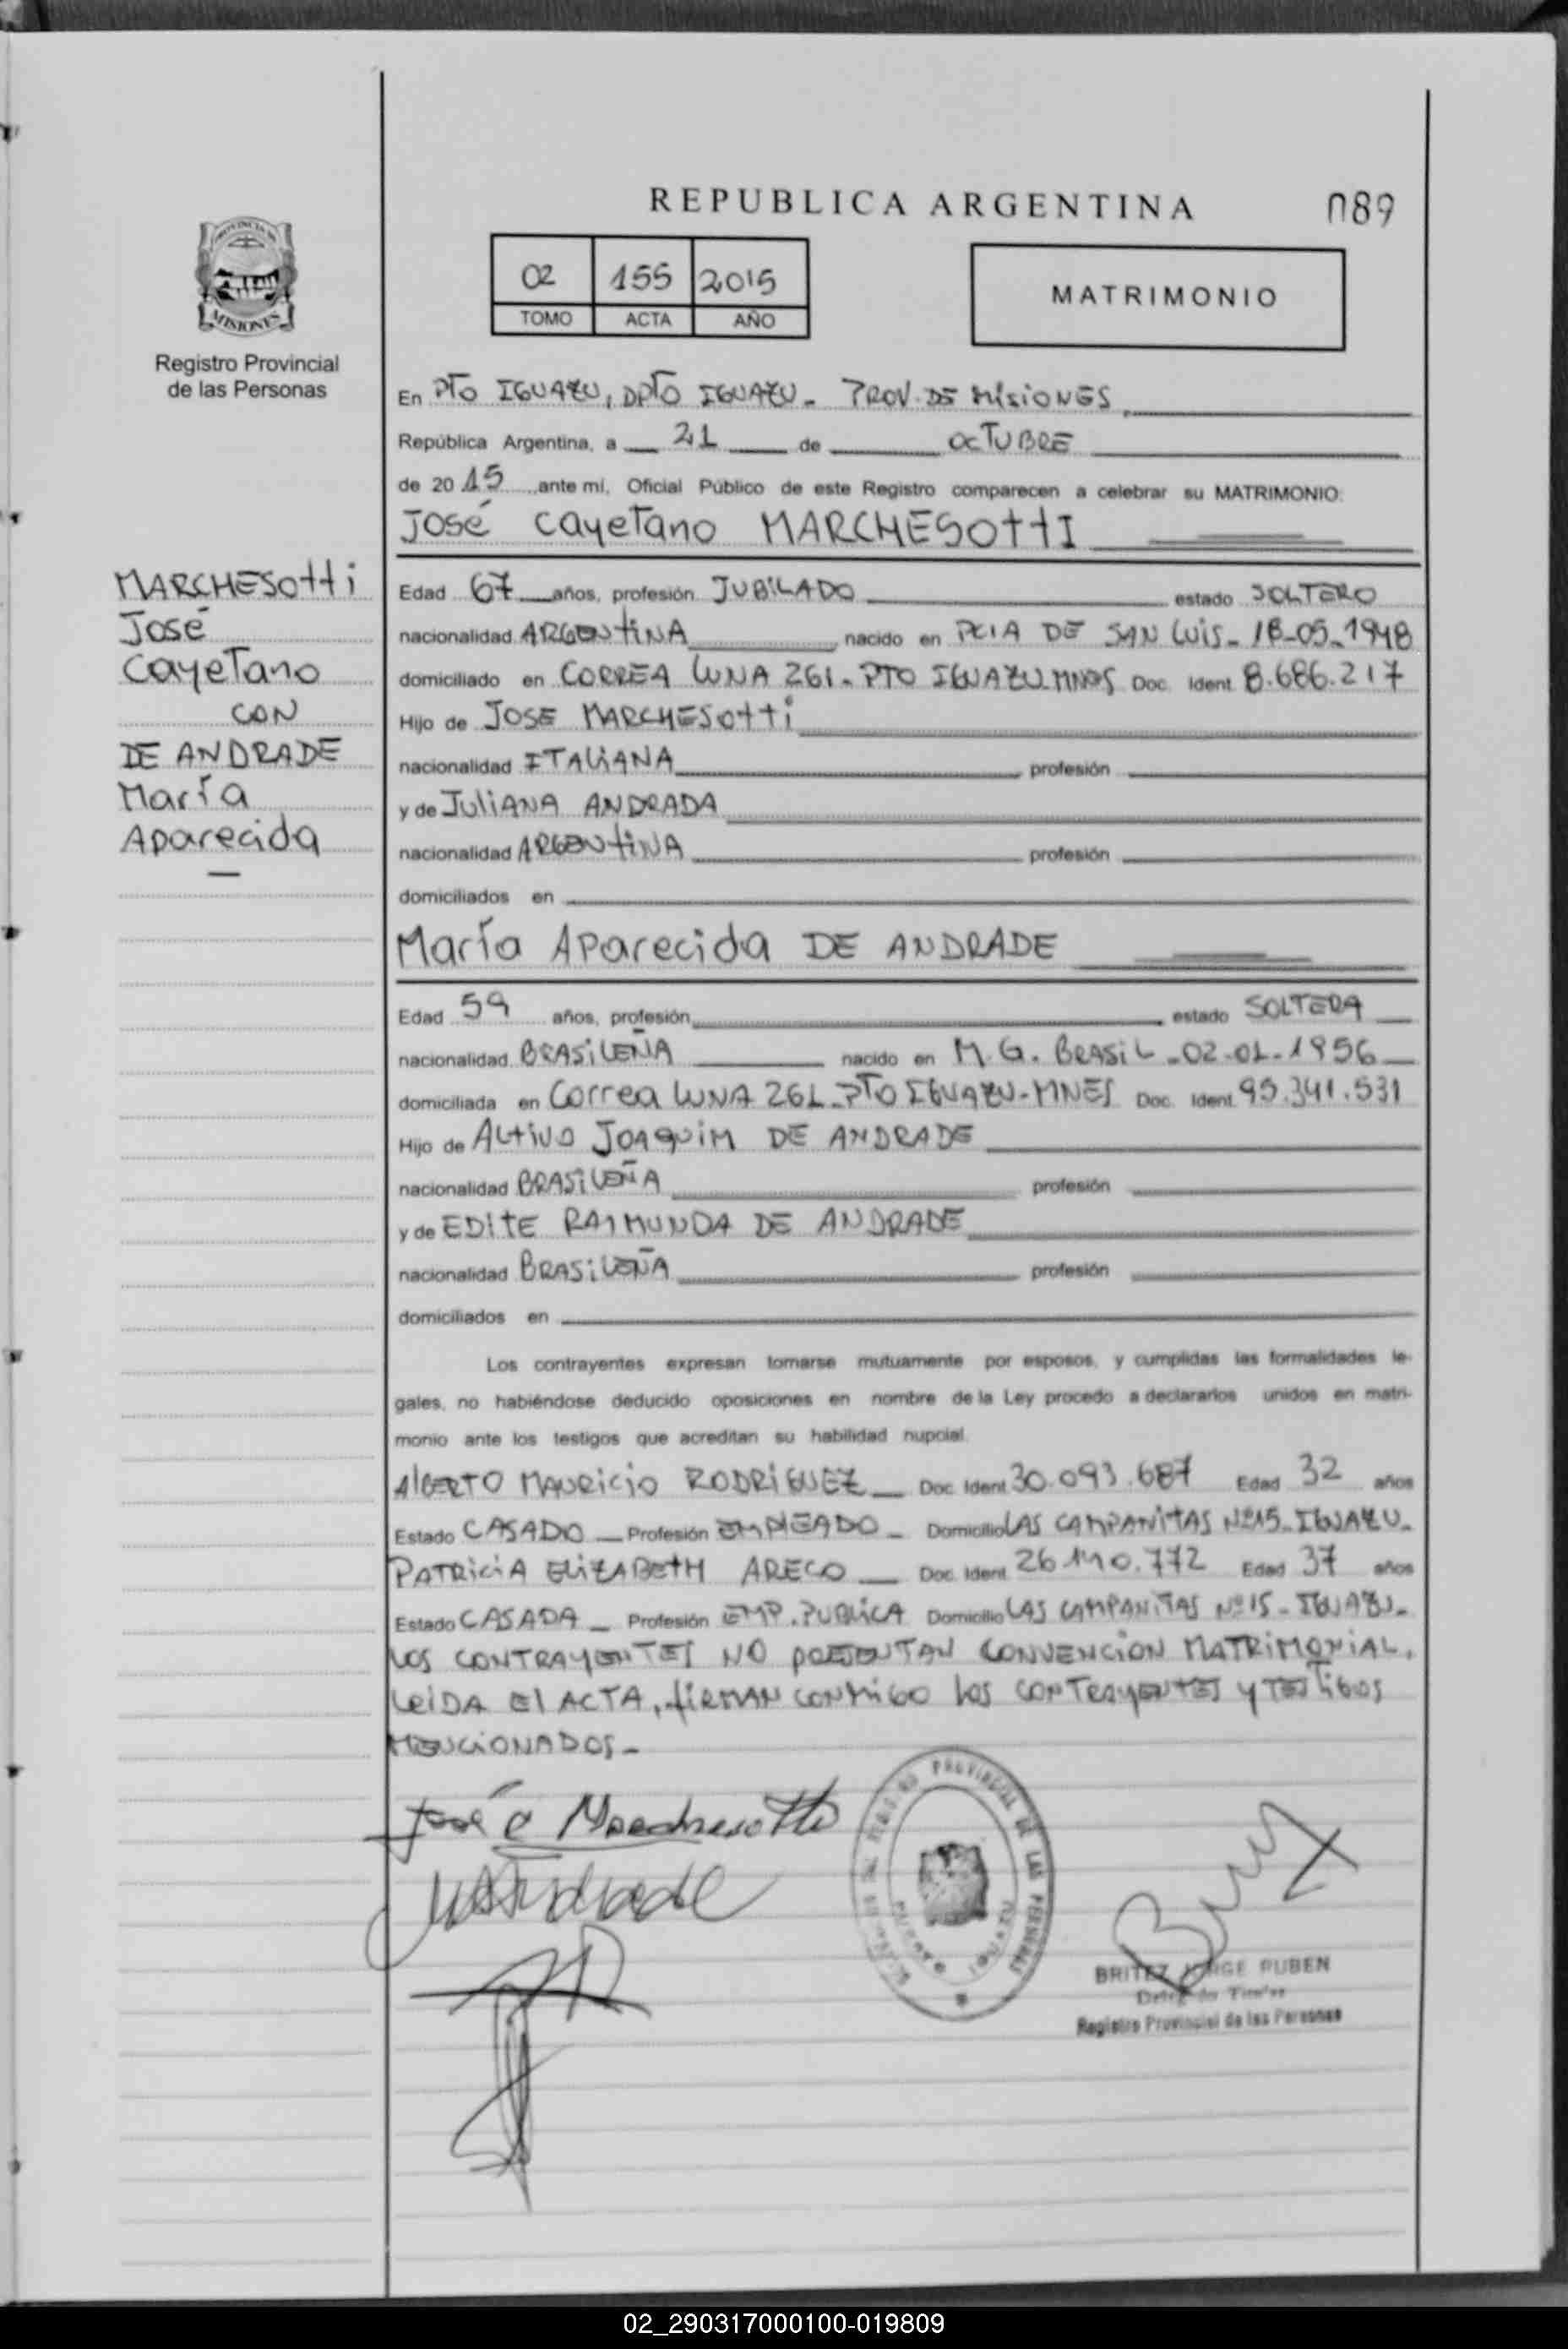 REPUBLICA ARGENTINA
089
02 155 2015
TOMO ACTA AÑO
MATRIMONIO
MISIONES
Registro Provincial
de las Personas
MARCHESOttI
José
Cayetano
CON
DE ANDRADE
María
Aparecida
En PTO IGUAZU, DPTO IGUAZU - PROV. DE MISIONES
República Argentina, a 21 de OCTUBRE
de 2015 ante mí, Oficial Público de este Registro comparecen a celebrar su MATRIMONIO:
José Cayetano MARCHESOttI
Edad 67 años, profesión JUBILADO estado SOLTERO
nacionalidad ARGENTINA nacido en PCIA DE SAN LUIS - 18-05-1948
domiciliado en CORREA LUNA 261 - PTO IGUAZU MNES Doc. Ident. 8.686.217
Hijo de JOSE MARCHESOtti
nacionalidad ITALIANA profesión
y de JULIANA ANDRADA
nacionalidad ARGENTINA profesión
domiciliados en
María Aparecida DE ANDRADE
Edad 59 años, profesión estado SOLTERA
nacionalidad BRASILEÑA nacido en M.G. BRASIL - 02-01-1956
domiciliada en Correa LUNA 261 - PTO IGUAZU - MNES Doc. Ident. 95.341.531
Hijo de ALTIVO JOAQUIM DE ANDRADE
nacionalidad BRASILEÑA profesión
y de EDITE RAIMUNDA DE ANDRADE
nacionalidad BRASILEÑA profesión
domiciliados en
Los contrayentes expresan tomarse mutuamente por esposos, y cumplidas las formalidades le-
gales, no habiéndose deducido oposiciones en nombre de la Ley procedo a declararlos unidos en matri-
monio ante los testigos que acreditan su habilidad nupcial.
AlBERTO MAURICIO RODRIGUEZ Doc. Ident. 30.093.687 Edad 32 años
Estado CASADO Profesión EMPLEADO - Domicilio LAS CAMPANITAS Nº15 - IGUAZU -
PATRICIA ELIZABETH ARECO Doc. Ident. 26.140.772 Edad 37 años
Estado CASADA - Profesión EMP. PUBLICA Domicilio LAS CAMPANITAS Nº15 - IGUAZU -
LOS CONTRAYENTES NO PRESENTAN CONVENCION MATRIMONIAL.
LEIDA El ACTA, FIRMAN CONMIGO LOS CONTRAYENTES Y TESTIGOS
MENCIONADOS -
José C Marchesotti
MAndrade
PROVINCIAL DE LAS PERSONAS
PUERTO IGUAZU
BRITEZ JORGE RUBEN
Registro Provincial de las Personas
02_290317000100-019809